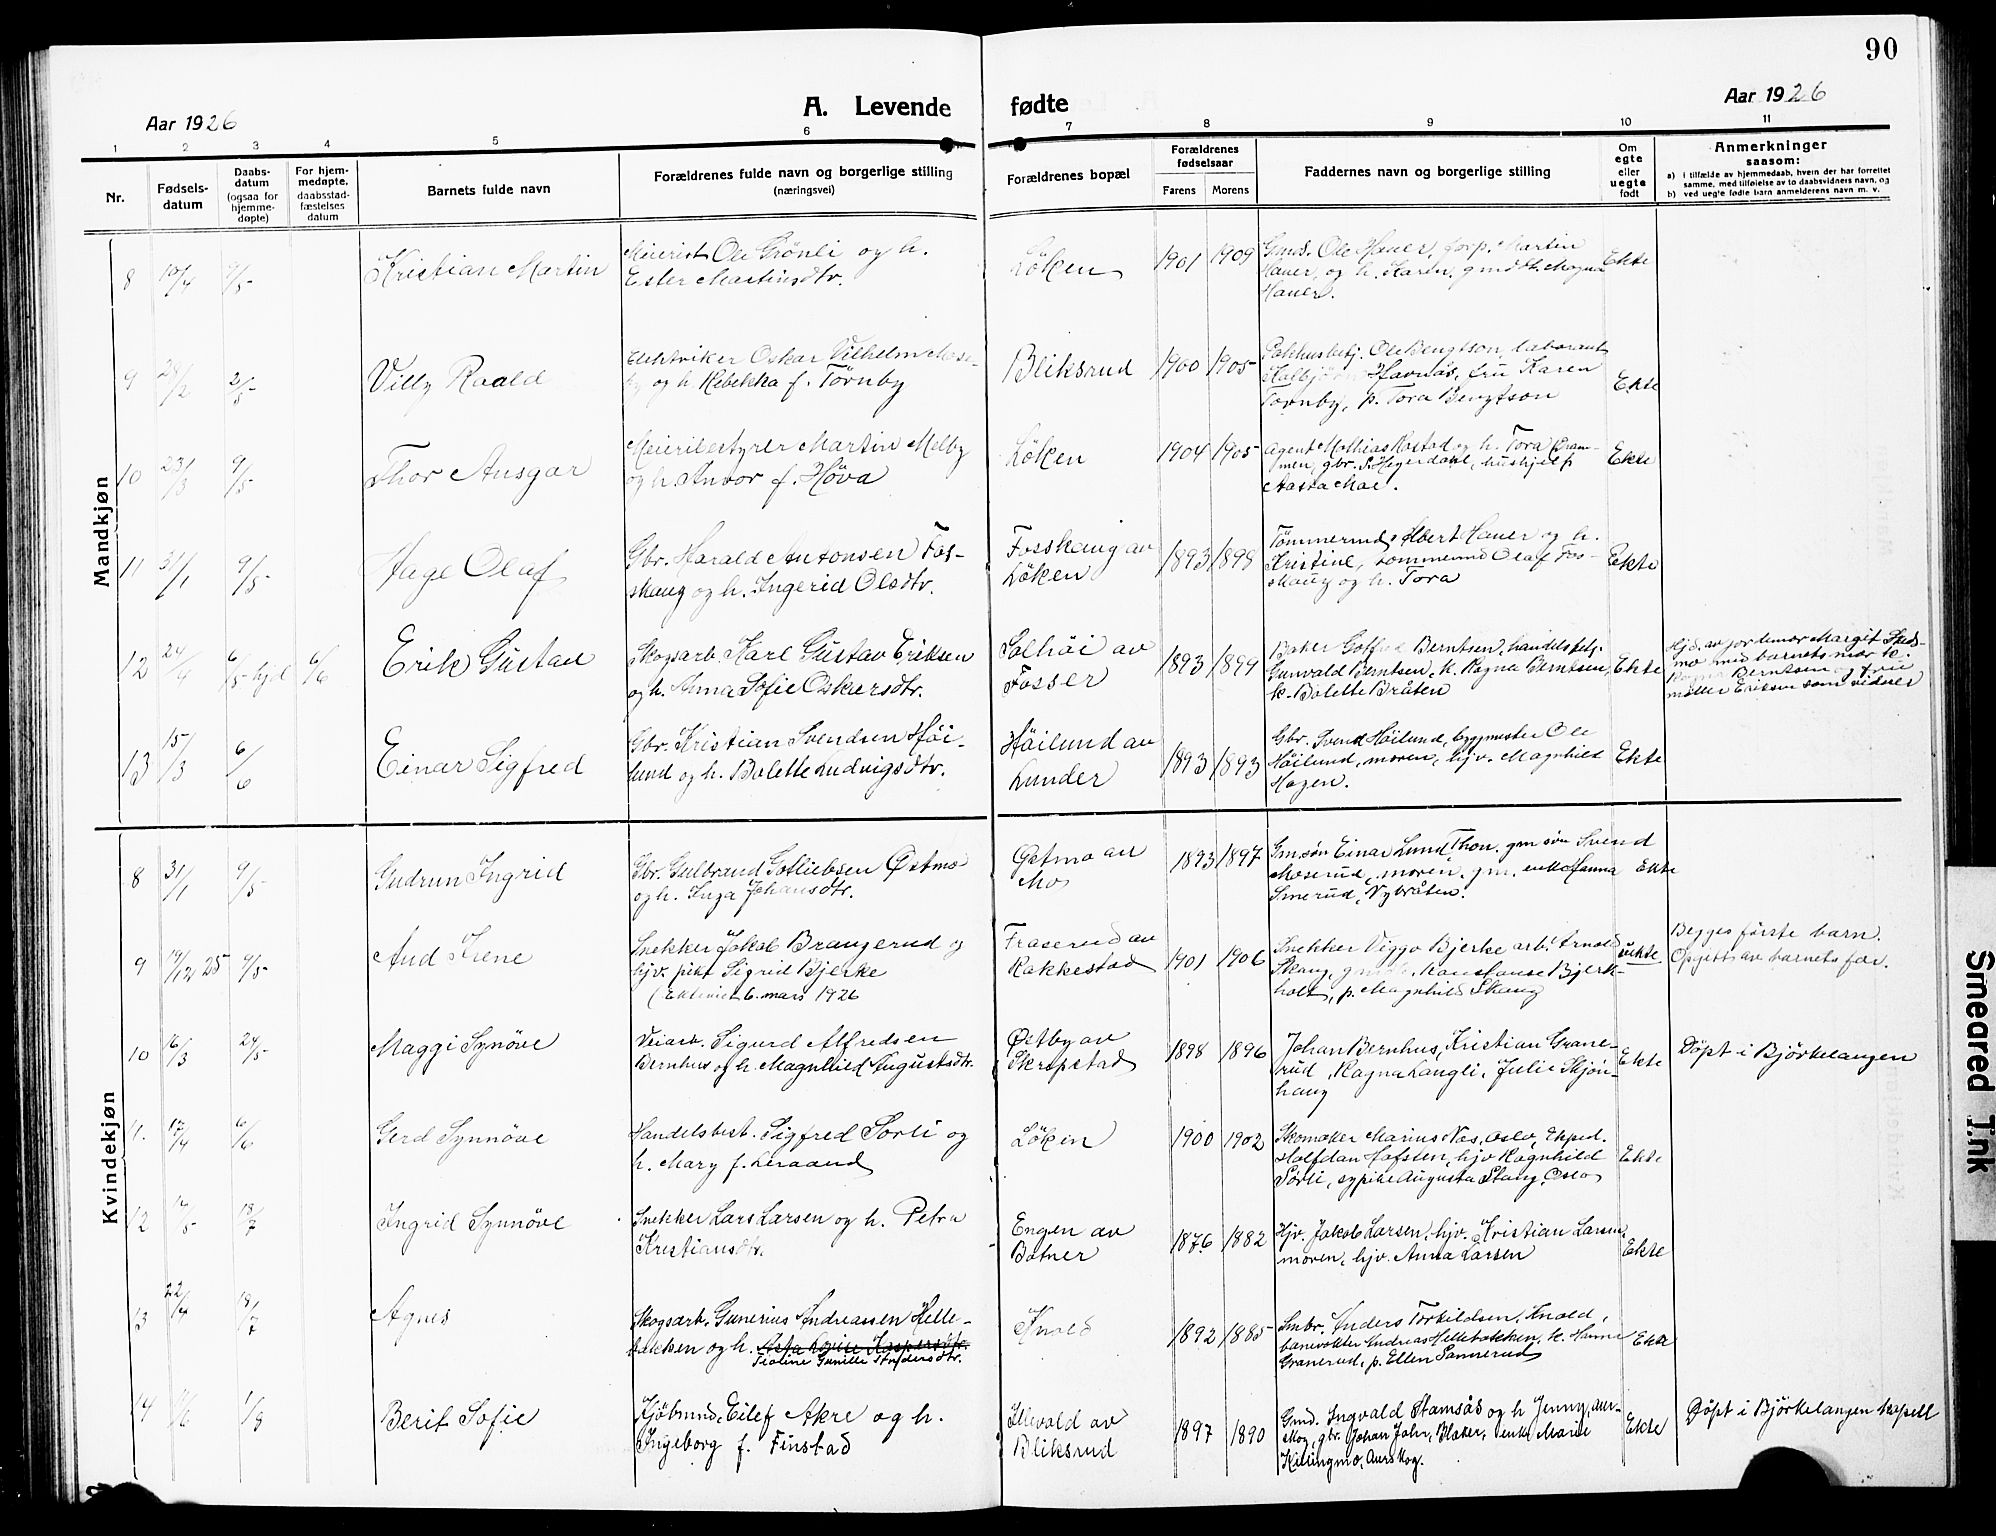 90
A. Levende fødte
Aar 1926
Aar 1926
1 2 3 4 5 6 7 8 9 10 11
Nr.
Fødsels-
datum
Daabs-
datum
(ogsaa for
hjemme-
døpte)
For hjem-
medøpte,
daabsstad-
fæstelses
datum
Barnets fulde navn
Forældrenes fulde navn og borgerlige stilling
(næringsvei)
Forældrenes bopæl
Forældrenes
fødselsaar
Farens Morens
Faddernes navn og borgerlige stilling
Om
egte
eller
uegte
født
Anmerkninger
saasom:
a) i tilfælde av hjemmedaab, hvem der har forrettet
samme, med tilføielse av to daabsvidners navn, og
b) ved uegte fødte barn anmelderens navn m. v.
Mandkjøn
8 10/4 9/5 Kristian Martin
Meierist Ole Grönli og h.
Ester Martinsdtr.
Löken
1901 1909
Gmd. Ole Hauer, forp. Martin
Hauer, og h. Karen, gmdt. Magna
Hauer.
Ekte
9 28/2 2/5 Villy Roald
Elektriker Oskar Vilhelm
og h. Rebekka f. Törnby
Bliksrud
1900 1905
Pakhusbetj. Ole Bengtson, laborant
Havnås, fru Karen
Törnby, p. Tora Bengtson
Ekte
10 23/3 9/5 Thor Ansgar
Meieribestyrer Martin Melby
og h. Anvor f. Höva
Löken
1904 1905
Agent Mathias Rostad og h. Tora
gbr. S. Hegerdahl, hushjelp
Aasta Moe.
Ekte
11 31/1 9/5 Hage Olaf
Gbr. Harald Antonsen Fos-
skaug og h. Ingerid Olsdtr.
Fosskaug av
Löken
1893 1899
Tömmermd. Albert Hauer og h.
Kristine, tömmermd Olaf Fos-
skaug og h. Tora
Ekte
12 24/4 6/5 hjd 6/6 Erik Gustav
Skogsarb. Karl Gustav Eriksen
og h. Anna Sofie Oskarsdtr.
Solhöi av
Fosser
1893 1899
Baker Gotfred Berntsen, handelsbetj.
Gunvald Berntsen, k. Ragna Berntsen,
k. Bolette Bråten
Ekte
Hjd. av jordemor Margit
mo med barnets mor k.
Ragna Berntsen og frue
Möller Eriksen som vidner
13 15/3 6/6 Einar Sigfred
Gbr. Kristian Svendsen Höi-
lund og h. Bolette Ludvigsdtr.
Höilund av
Lunder
1893 1893
Gbr. Svend Höilund, byggmester Ole
Höilund, moren, hjv. Magnhild
Hagen.
Ekte
Kvindekjøn
8 31/1 9/5 Gudrun Ingrid
Gbr. Gulbrand Gotliebsen Østmo
og h. Inga Johansdtr.
Østmo av
Mo
1893 1897
Gmsön Einar Lund, Thon, gm sön Svend
Moserud, moren, gm. enke Hanna
Smerud, Nybråten.
Ekte
9 19/12 25 9/5 Aud Irene
Snekker Jakob Brangerud og
hjv. pike Sigrid Bjerke
(Ekteviet 6. mars 1926
Fraserud av
Rakkestad
1901 1906
Snekker Viggo Bjerke arb. Arnold
Skaug, Konstanse Bjerk-
holt, p. Magnhild Skaug
uekte
Begges förste barn.
Opgitt av barnets far.
10 16/3 24/5 Maggi Synöve
Veiarb. Sigurd Alfredsen
Bernhus og h. Magnhild Augustsdtr.
Østby av
Skrepstad
1898 1896
Johan Bernhus, Kristian Grane-
rud, Ragna Langli, Julie Skjön-
haug
Ekte
Döpt i Björkelangen
11. 17/4 6/6 Gerd Synnöve
Handelsbest. Sigfred Sörli og
h. Mary f. Leraand
Löken
1900 1902
Skomaker Marius Nes, Oslo, Exped.
Halfdan Hofsten, hjv Ragnhild
Sörli, sypike Augusta Stang, Oslo
Ekte
12 18/7 Ingrid Synnöve
Snekker Lars Larsen og h. Petra
Kristiansdtr.
Engen av
Botner
1876 1882
Hjv. Jakob Larsen, hjv. Kristian Larsen,
moren, hjv. Anna Larsen
Ekte
13 22/4 18/7 Agnes
Skogsarb. Gunerius Andreassen Helle-
bakken og h. Asta Lovise Kaspersdtr.
Teoline Gunille
Knold
1892 1885
Smbr. Anders Torkildsen, Knold,
banevokter Andreas Hellebakken, k. Hanna
Granerud, p. Ellen Sannerud
Ekte
14 1/8 Berit Sofie
Kjöbmnd. Eilef Akre og h.
Ingeborg f. Finstad
Illevold av
Bliksrud
1897 1890
Gmd. Ingvald Stamsås og h Jenny, Aur-
skog, gbr. Johan Jahr, Blaker, enke Marie
Killingmo, Aurskog.
Ekte
Döpt i Björkelangen kapell
Smeared Ink